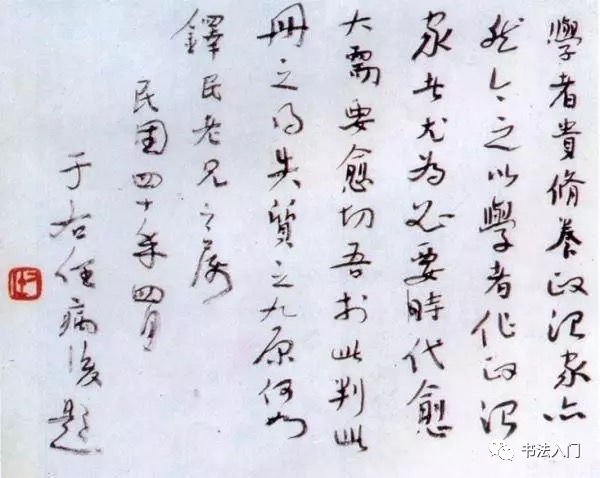 學者貴脩養政治家亦
然今之以學者作政治
家者尤為必要時代愈
大需要愈切吾於此判此
冊之得失質之九原何如
鐸民老兄之屬
民國四十年四月
于右任病後題
书法入门